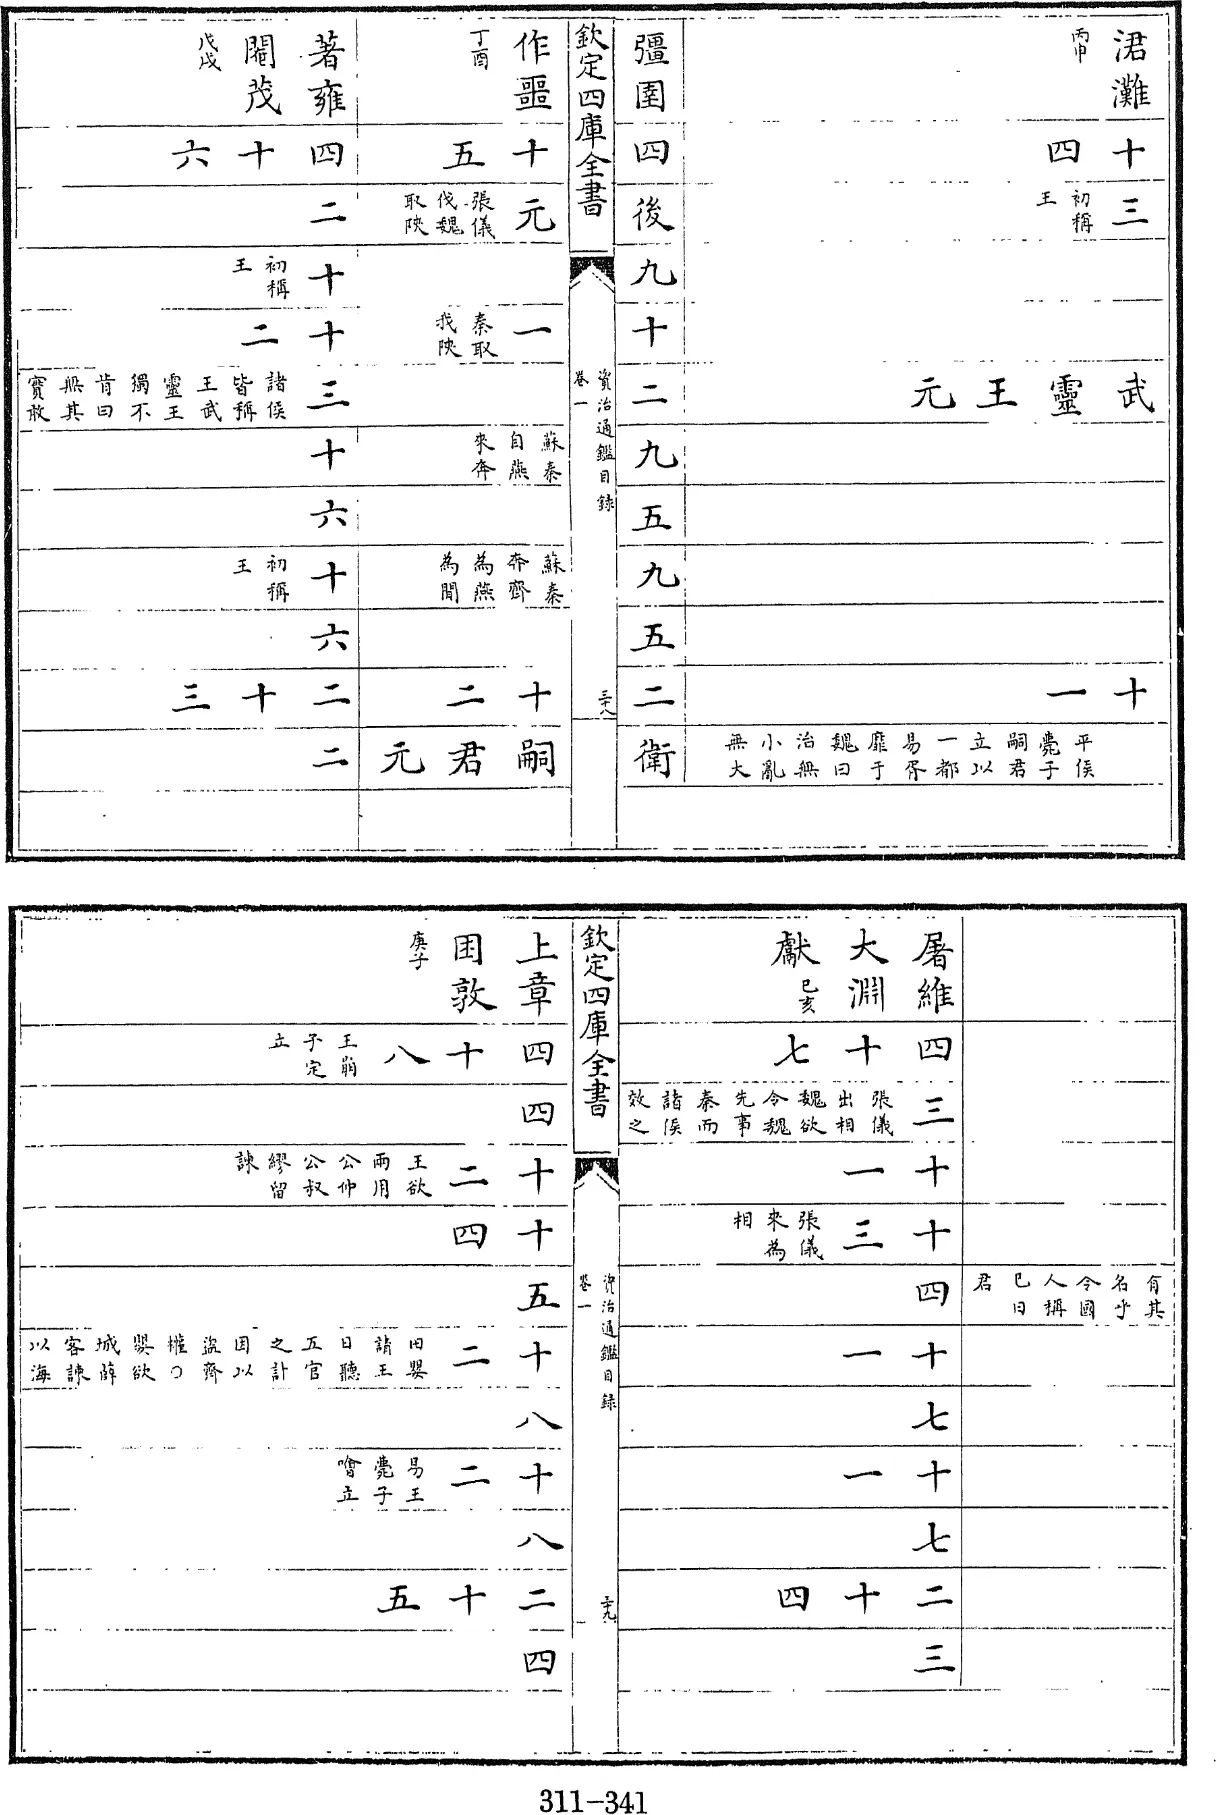 涒灘 丙申
十四
三 初稱王
武靈王元
十一
平侯薨子嗣君立以一都易胥靡于魏曰治無小亂無大
彊圉
四
後
九
十
二
九
五
九
五
二
衛
欽定四庫全書
資治通鑑目録
卷一
三十八
作噩 丁酉
十五
元 張儀伐魏取陝
一 秦取我陝
蘇秦自燕來奔
蘇秦奔齊為燕間
十二
嗣君元
著雍閹茂 戊戌
四十六
二
十 初稱王
十二
三 諸侯皆稱王武靈王獨不肯曰無其實敢
十
六
十 初稱王
六
二十三
二
有其名乎令國人稱已曰君
屠維大淵獻 已亥
四十七
三 張儀出相魏欲令魏先事秦而諸侯效之
十一
十三 張儀來為相
四
十一
七
十一
七
二十四
三
欽定四庫全書
資治通鑑目録
卷一
三十九
上章困敦 庚子
四十八 王崩子定立
四
十二 王欲兩用公仲公叔繆留諫
十四
五
十二 田嬰請王日聽五官之計因以盜齊權〇嬰欲城薛客諫以海
八
十二 易王薨子噲立
八
二十五
四
311-341